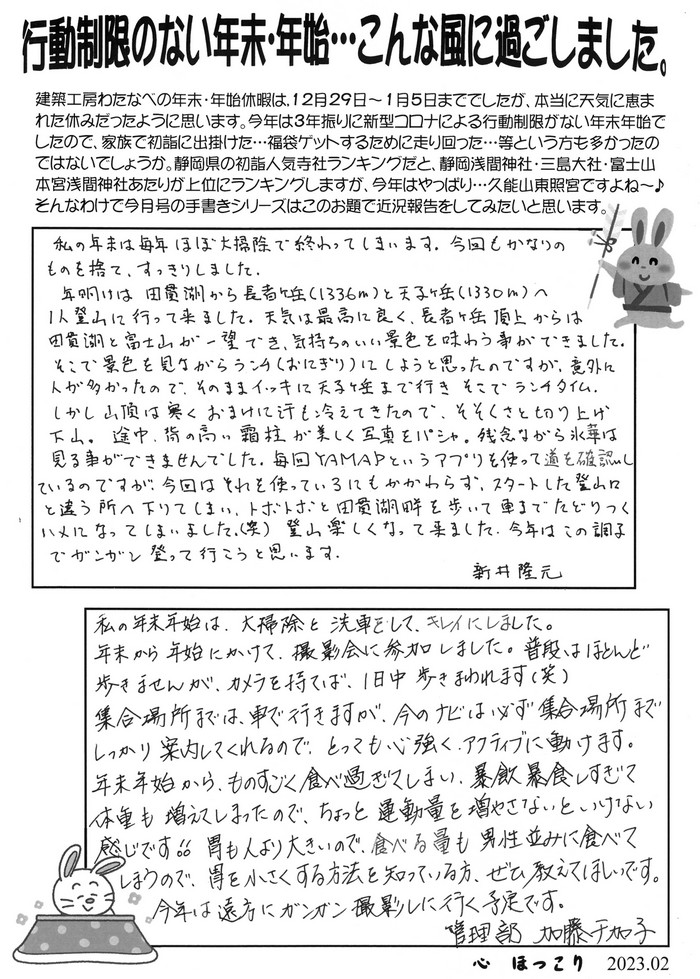 行動制限のない年末・年始…こんな風に過ごしました。
建築工房わたなべの年末・年始休暇は、12月29日～1月5日まででしたが、本当に天気に恵ま
れた休みだったように思います。今年は3年振りに新型コロナによる行動制限がない年末年始で
したので、家族で初詣に出掛けた…福袋ゲットするために走り回った…等という方も多かったの
ではないでしょうか。静岡県の初詣人気寺社ランキングだと、静岡浅間神社・三島大社・富士山
本宮浅間神社あたりが上位にランキングしますが、今年はやっぱり…久能山東照宮ですよね～♪
そんなわけで今月号の手書きシリーズはこのお題で近況報告をしてみたいと思います。
私の年末は毎年ほぼ大掃除で終わってしまいます。今回もかなりの
ものを捨て、すっきりしました。
年明けは田貫湖から長者ヶ岳(1336m)と天子ヶ岳(1330m)へ
1人登山に行って来ました。天気は最高に良く、長者ヶ岳頂上からは
田貫湖と富士山が一望でき、気持ちのいい景色を味わう事ができました。
そこで景色を見ながらランチ(おにぎり)にしようと思ったのですが、意外に
人が多かったので、そのままイッキに天子ヶ岳まで行きそこでランチタイム.
しかし山頂は寒くおまけに汗も冷えてきたので、そそくさと切り上げ
下山。途中、背の高い霜柱が美しく写真をパシャ。残念ながら氷華は
見る事ができませんでした。毎回YAMAPというアプリを使って道を確認し
ているのですが、今回はそれを使っているにもかかわらず、スタートした登山口
と違う所へ下りてしまい、トボトボと田貫湖畔を歩いて車までたどりつく
ハメになってしまいました。(笑) 登山楽しくなって来ました.今年はこの調子
でガンガン登って行こうと思います.
新井隆元
私の年末年始は、大掃除と洗車をして、キレイにしました。
年末から年始にかけて、撮影会に参加しました。普段はほとんど
歩きませんが、カメラを持てば、1日中歩きまわれます(笑)
集合場所までは、車で行きますが、今のナビは必ず集合場所まで
しっかり案内してくれるので、とっても心強く.アクティブに動けます。
年末年始から、ものすごく食べ過ぎてしまい、暴飲暴食しすぎて
体重も増えてしまったので、ちょっと運動量を増やさないといけない
感じです。。胃も人より大きいので、食べる量も男性並みに食べて
しまうので、胃を小さくする方法を知っている方、ぜひ教えてほしいです。
今年は遠方にガンガン撮影しに行く予定です。
管理部 加藤千加子
心 ほっこり 2023.02